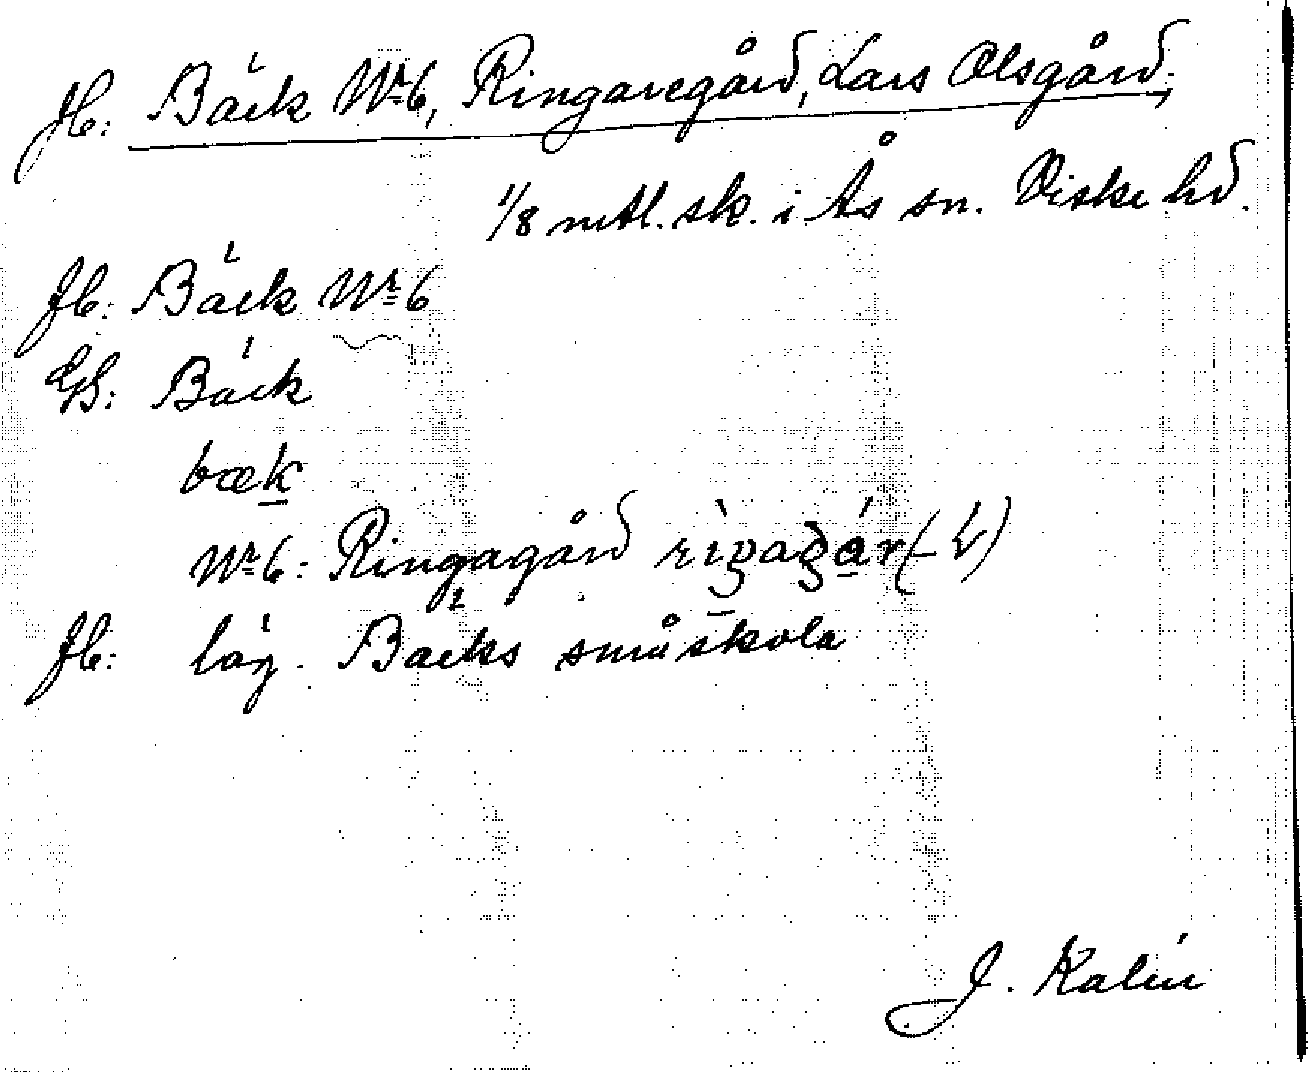 Jb: Bäck Nr 6, Ringaregård, Lars Olsgård;
1/8 mtl. sk. i Ås sn. Viske hd.
Jb: Bäck Nr 6
GS: Bäck
bæk
Nr 6: Ringagård
Jb: läg. Bäcks småskola
J. Kalén